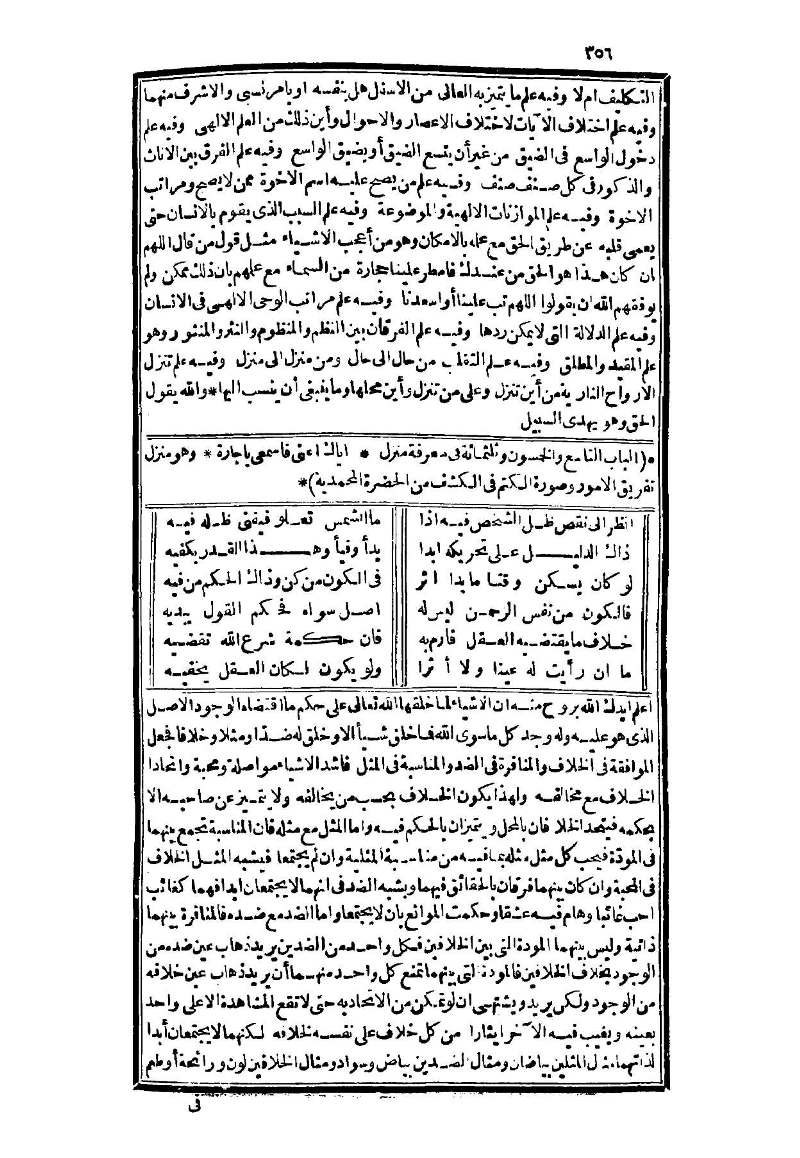 ٣٥٦
التكليف ام لا وفيه علم ما يتميز به العالى من الاسفل هل بنفسه او بأمر نسبى والاشرف منهما
وفيه علم اختلاف الآيات لاختلاف الاعصار والاحوال وأين ذلك من العلم الالهى وفيه علم
دخول الواسع فى الضيق من غير أن يتسع الضيق أو يضيق الواسع وفيه علم الفرق بين الاناث
والذكور فى كل صنف صنف وفيه علم من يصح عليه اسم الاخوة ممن لا يصح ومراتب
الاخوة وفيه علم الموازنات الالهية والموضوعة وفيه علم السبب الذى يقوم بالانسان حتى
يعمى قلبه عن طريق الحق مع علمه بالامكان وهو من أعجب الاشياء مثل قول من قال اللهم
ان كان هذا هو الحق من عندك فامطر علينا حجارة من السماء مع علمهم بان ذلك ممكن ولم
يوفقهم الله ان يقولوا اللهم تب علينا أو اسعدنا وفيه علم مراتب الوحى الالهى فى الانسان
وفيه علم الدلالة التى لا يمكن ردها وفيه علم الفرقان بين النظم والمنظوم والنثر والمنثور وهو
علم المقيد والمطلق وفيه علم التقلب من حال الى حال ومن منزل الى منزل وفيه علم تنزل
الارواح النارية من أين تنزل وعلى من تنزل وأين محلها وما ينبغى أن ينسب اليها * والله يقول
الحق وهو يهدى السبيل
* (الباب التاسع والخمسون وثلثمائة فى معرفة منزل * اياك اعنى فاسمعى يا جارة * وهو منزل
تفريق الامور وصورة الكتم فى الكشف من الحضرة المحمدية) *
انظر الى نقص ظل الشخص فيه اذا ما الشمس تعلو فيفنى ظله فيه
ذاك الدليل على تحريكه ابدا بدأ وفيأ وهذا القدر يكفيه
لو كان يسكن وقتا ما بدا اثر فى الكون من كن وذاك الحكم من فيه
فالكون من نفس الرحمن ليس له اصل سواه فحكم القول يبديه
خلاف ما يقتضيه العقل فارم به فان حكمة شرع الله تقضيه
ما ان رأيت له عينا ولا أثرا ولو يكون لكان العقل يخفيه
اعلم ايدك الله بروح منه ان الاشياء لما خلقها الله تعالى على حكم ما اقتضاه الوجود الاصل
الذى هو عليه وله وجد كل ما سوى الله فما خلق شيأ الا وخلق له ضدا ومثلا وخلافا فجعل
الموافقة فى الخلاف والمنافرة فى الضد والمناسبة فى المثل فاشد الاشياء مواصلة ومحبة واتحادا
الخلاف مع مخالفه ولهذا يكون الخلاف بحسب من يخالفه ولا يتميز عن صاحبه الا
بحكمه فيتحد الخلافان بالمحل ويتميزان بالحكم فيه واما المثل مع مثله فان المناسبة تجمع بينهما
فى المودة فيحب كل مثل مثله بما فيه من مناسبة المثلية وان لم يجتمعا فيشبه المثل الخلاف
فى المحبة وان كان بينهما فرقان بالحقائق فيهما ويشبه الضد فى انهما لا يجتمعان ابدا فهما كغائب
احب غائبا وهام فيه عشقا وحكمت الموانع بان لا يجتمعا واما الضد مع ضده فالمنافرة بينهما
ذاتية وليس بينهما المودة التى بين الخلافين فكل واحد من الضدين يريد ذهاب عين ضده من
الوجود بخلاف الخلافين فالمودة التى بينهما تمنع كل واحد منهما أن يريد ذهاب عين خلافه
من الوجود ولكن يريد ويشتهى ان لو تمكن من الاتحاد به حتى لا تقع المشاهدة الا على واحد
بعينه ويغيب فيه الآخر ايثارا من كل خلاف على نفسه لخلافه لكنهما لا يجتمعان أبدا
لذاتهما مثل المثلين بياضان ومثال الضدين بياض وسواد ومثال الخلافين لون ورائحة أو طعم
فى